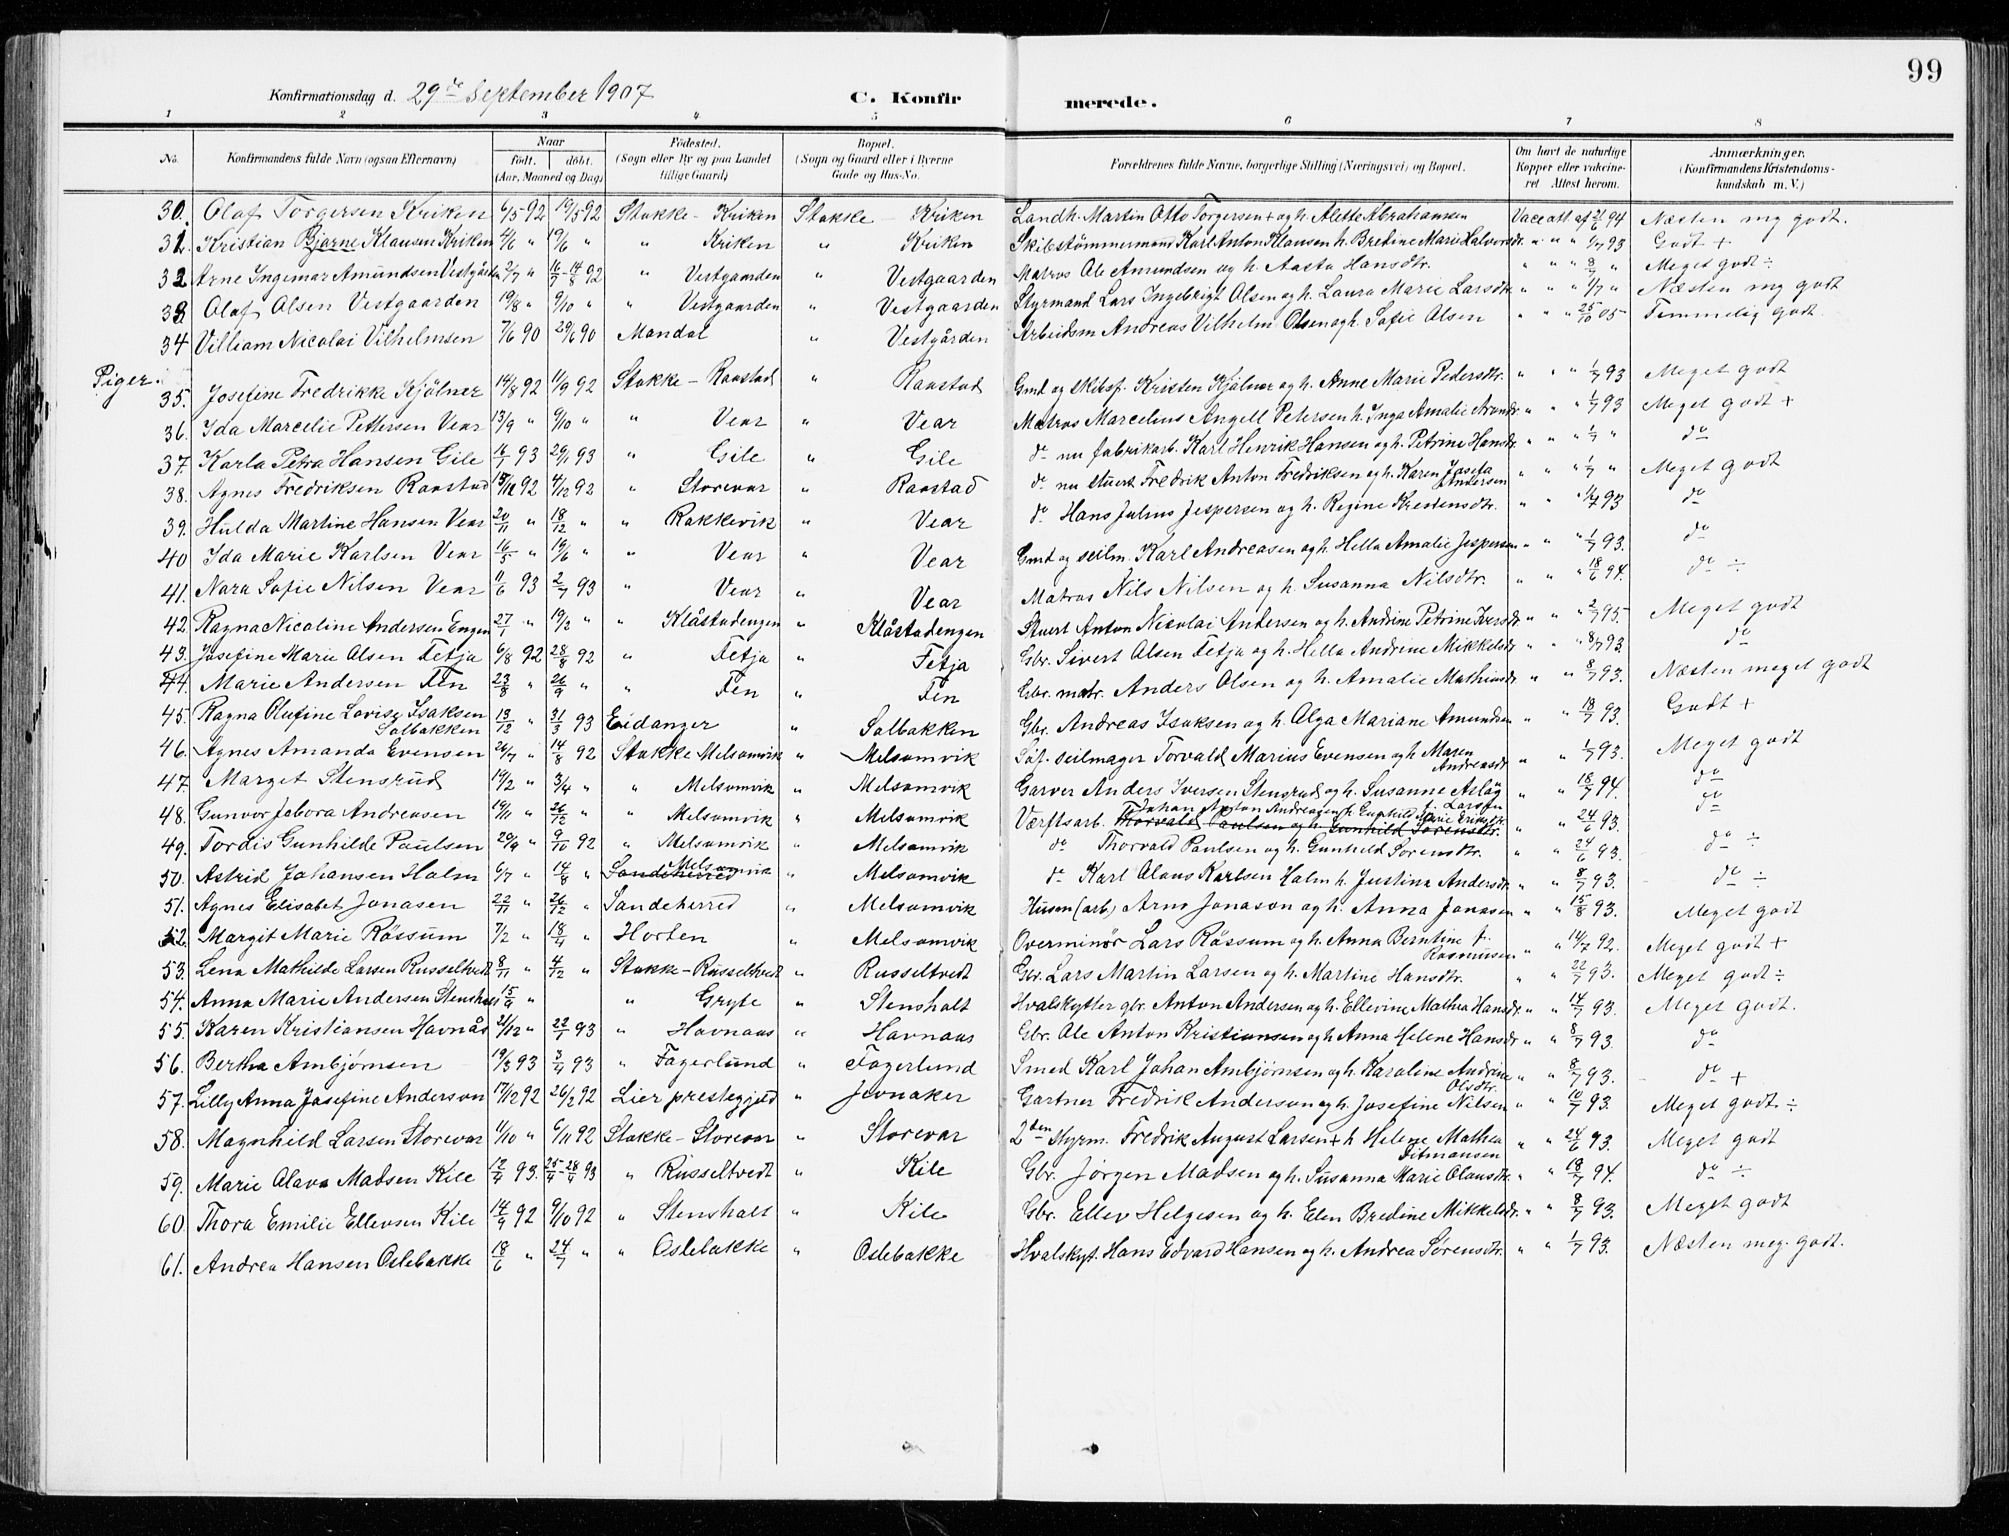 99
Konfirmationsdag d. 29de September 1907 C. Konfirmerede.
1 2 3 4 5 6 7 8
No. Konfirmandens fulde Navn (ogsaa Efternavn) Naar født. døbt. (Aar, Maaned og Dag) Fødested. (Sogn eller By og paa Landet tillige Gaard) Bopæl. (Sogn og Gaard eller i Byerne Gade og Hus-No. Forældrenes fulde Navne, borgerlige Stilling (Næringsvei) og Bopæl. Om havt de naturlige Kopper eller vakcineret Attest herom. Anmærkninger. (Konfirmandens Kristendomskundskab m. V.)
30. Olaf Torgersen Kriken 6/5 92 19/5 92 Stokke - Kriken Stokke - Kriken Landh. Martin Otto Torgersen + og h. Alette Abrahamsen Vacc att af 21/6 94 Næsten mg godt.
31. Kristian Bjarne Klausen Kriken 4/6 " 19/6 " " Kriken " Kriken Skibstømmermand Karl Anton Klausen h. Bredine Marie Halvorsdr. " " " 9/7 93 Godt +
32. Arne Ingemar Amundsen Vestgården 2/7 " 16/7 - 14/8 92 " Vestgaarden " Vestgaarden Matros Ole Amundsen og h. Aasta Hansdtr. " " " 8/7 " Meget godt ÷
33. Olaf Olsen Vestgaarden 19/8 " 9/10 " " Vestgaarden " Vestgaarden Styrmand Lars Ingebrigt Olsen og h. Laura Marie Larsdtr " " " 1/7 " Næsten mg godt
34 Villiam Nicolai Vilhelmsen 7/6 90 29/6 90 Mandal " Vestgården Arbeidsm Andreas Vilhelm Olsen og h. Sofie Olsen " " " 25/10 05 Temmelig godt.
Piger.
35. Josefine Fredrikke Kjölner 14/8 92 11/9 92 Stokke - Raastad " Raastad Gmd og skibsf. Kristen Kjölner og h. Anne Marie Pedersdtr. " " " 1/7 93 Meget godt
36. Ida Marcelie Pettersen Vear 13/9 " 9/10 " " Vear " Vear Matros Marcelius Angell Petersen h. Inga Amalie " " " 1/7 93 Meget godt +
37. Karla Petra Hansen Gile 16/1 93 29/1 93 " Gile " Gile do nu fabrikarb. Karl Henrik Hansen og h. Petrine Hansdr. " " " 1/7 " do
38. Agnes Fredriksen Raastad 15/12 92 4/12 92 " Storevar " Raastad do nu stuert Fredrik Anton Fredriksen og h. Karen Josefa Andersen " " " 1/7 " Meget godt
39. Hulda Martine Hansen Vear 20/11 " 18/12 " " Rakkevik " Vear do Hans Julius Jespersen og h. Regine Kristensdtr. " " " 1/7 93 do
40 Ida Marie Karlsen Vear 16/5 " 19/6 " " Vear " Vear Gmd og seilm. Karl Andreasen og h. Hella Amalie Jespersen " " " 1/7 93. do
41. Nora Sofie Nilsen Vear 11/6 93 2/7 93 " Vear " Vear Matros Nils Nilsen og h. Susanna Nilsdtr. " " " 18/6 94. do ÷
42. Ragna Nicoline Andersen Engen 27/1 " 19/2 " " Klåstadengen " Klåstadengen Stuert Anton Nicolai Andersen og h. Andrine Petrine Iversdr " " " 2/7 95 Meget godt
43. Josefine Marie Olsen Fetja 6/8 92 28/8 92 " Fetja " Fetja Gbr. Sivert Olsen Fetja og h. Hella Andrine Mikkelsdr " " " 8/7 93. do
44. Marie Andersen Fen 23/8 " 26/9 " " Fen " Fen Gbr. matr. Anders Olsen og h. Amalie Mathiasdr " " 8/7 93. Næsten meget godt
45. Ragna Olufine Lovise Isaksen Solbakken 13/12 " 31/3 93 Eidanger " Solbakken Gbr. Andreas Isaksen og h. Olga Mariane Amundsen " " 18/7 93. Godt +
46. Agnes Amanda Evensen 26/7 " 14/8 92 Stokke Melsomvik " Melsomvik Søf. seilmager Torvald Marius Evensen og h Maren Andreasdr " " 1/7 93. Meget godt
47. Marget Stensrud 19/2 " 3/4 " " Melsomvik " Melsomvik Garver Anders Iversen Stensrud og h. Susanne Aslög f. Larsen " " 18/7 94. do
48. Gunvor Jebora Andreasen 19/11 " 26/12 " " Melsomvik " Melsomvik Værftsarb. Johan Anton Andreasen h Gunhild Marie Eriksdtr. Thorvald Paulsen og h. Gunhild Sørensdtr. " " 24/6 93. do
49. Tordis Gunhilde Paulsen 20/9 " 9/10 92 " Melsomvik " Melsomvik do Thorvald Paulsen og h. Gunhild Sørensdtr. " " 24/6 93. do ÷
50. Astrid Johansen Holm 6/7 " 14/8 " Sandeherred Melsomvik " Melsomvik do Karl Olaus Karlsen Holm h. Justina Andersdr " " 8/7 93. do ÷
51. Agnes Elisabet Jonasen 22/11 " 26/12 " Sandeherred " Melsomvik Husm (arb) Arne Jonason og h. Anna Jonasen " " 15/8 93. Meget godt
52. Margit Marie Røssum 7/2 " 18/4 " Horten " Melsomvik Overminör Lars Røssum og h. Anna Berntine f. Rasmussen " " 14/7 92. Meget godt +
53. Lena Mathilde Larsen Russeltvedt 8/11 " 4/12 " Stokke - Russeltvedt " Russeltvedt Gbr. Lars Martin Larsen og h. Martine Hansdtr. " " 22/7 93. Meget godt ÷
54. Anna Marie Andersen Stensholt 15/9 " " Gryte " Stensholt Hvalskytter gbr. Anton Andersen og h. Ellevine Mathea Hansdr " " 14/7 93. Meget godt.
55. Karen Kristiansen Havnås 21/12 " 22/1 93 " Havnaas " Havnaas Gbr. Ole Anton Kristiansen og h Anna Helene Hansdr " " 8/7 93. do
56. Bertha Ambjørnsen 19/3 93 3/4 93 " Fagerlund " Fagerlund Smed Karl Johan Ambjørnsen og h. Karoline Andrine Olsdtr. " " 8/7 93. do +
57. Lilly Anna Josefine Anderson 17/12 92 26/2 92 Lier prestegjeld " Jevnaker Gartner Fredrik Anderson og h. Josefine Nilsen " " 10/7 93. Meget godt ÷
58. Magnhild Larsen Storevar 11/10 " 6/11 92 Stokke - Storevar " Storevar 2den Styrm. Fredrik August Larsen + h Helene Mathea Ditmansen " " 24/6 93. Meget godt
59. Marie Olava Madsen Kile 12/4 93. 25/4 - 28/4 93 " Russeltvedt " Kile Gbr. Jørgen Madsen og h. Susanna Marie Olausdtr. " " 18/7 94. do ÷
60. Thora Emilie Ellevsen Kile 14/9 92 9/10 92 " Stensholt " Kile Gbr. Ellev Helgesen og h. Elen Bredine Mikkelsdr. " " 8/7 93. Meget godt
61. Andrea Hansen Oslebakke 18/6 " 24/7 " " Oslebakke " Oslebakke Hvalskyt. Hans Edvard Hansen og h. Andrea Sørensdtr. " " 1/7 93. Næsten meg. godt.